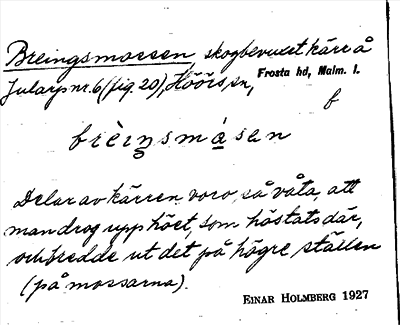 Breingsmossen, skogbevuxet kärr å
Jularp nr 6 (fig. 20), Höörs sn, Frosta hd, Malm. l.
f
brèiŋsmå̀sen
Delar av kärren voro så våta, att
man drog upp höet, som höstats där,
och bredde ut det på högre ställen
(på mossarna).
EINAR HOLMBERG 1927